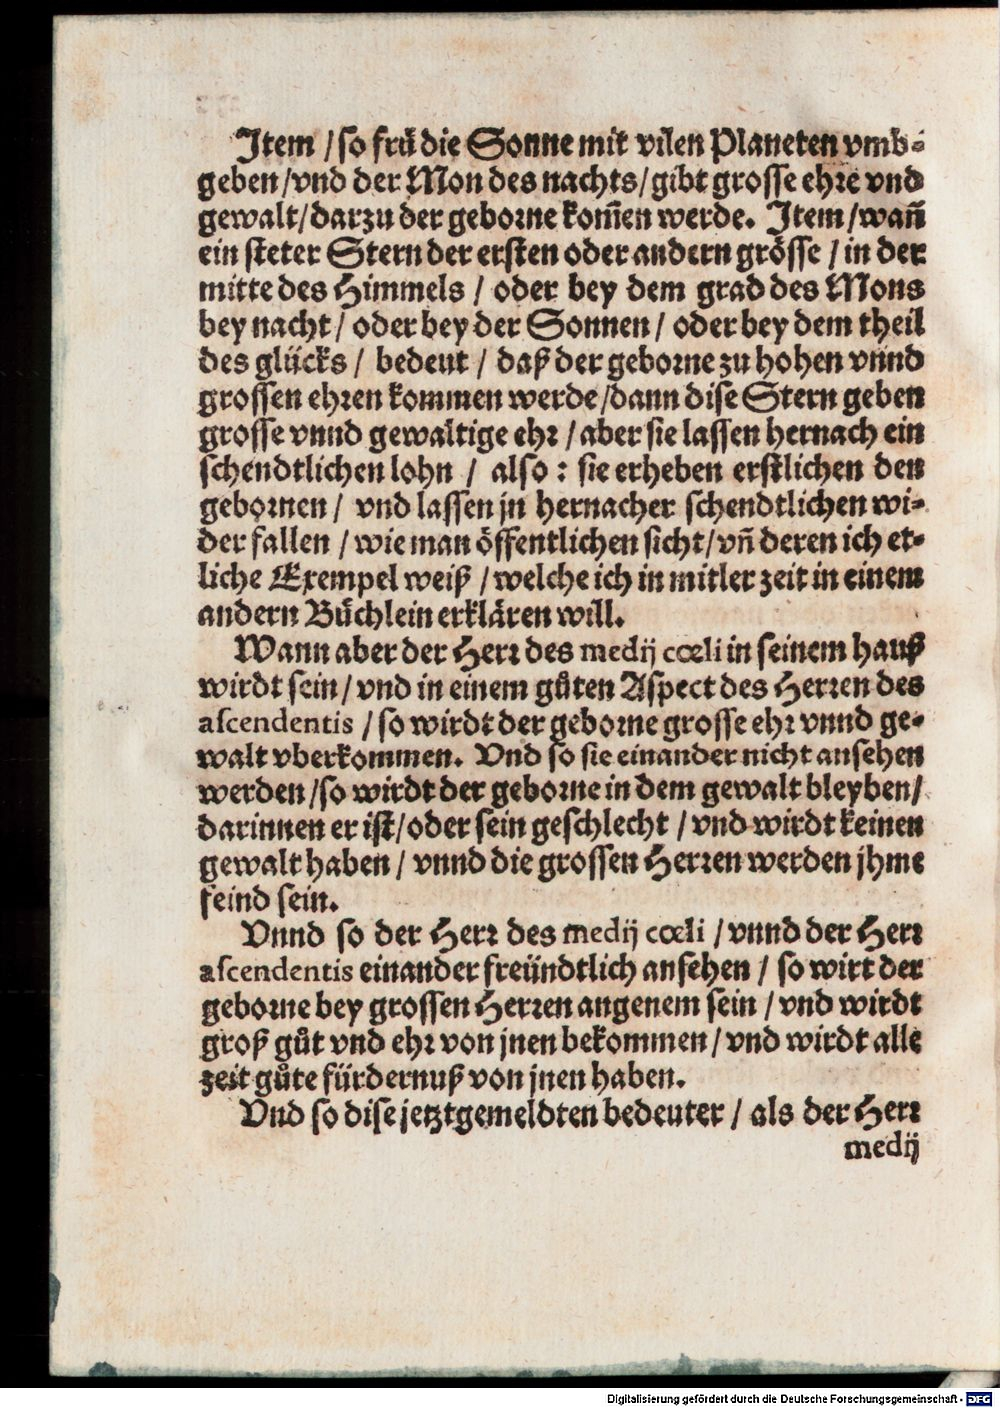 Item / so frü die Sonne mit vilen Planeten vmb-
geben / vnd der Mon des nachts / gibt grosse ehre vnd
gewalt / darzu der geborne kom̃en werde. Item / wañ
ein steter Stern der ersten oder andern grösse / in der
mitte des Himmels / oder bey dem grad des Mons
bey nacht / oder bey der Sonnen / oder bey dem theil
des glücks / bedeut / daß der geborne zu hohen vnnd
grossen ehren kommen werde / dann dise Stern geben
grosse vnnd gewaltige ehr / aber sie lassen hernach ein
schendtlichen lohn / also : sie erheben erstlichen den
gebornen / vnd lassen jn hernacher schendtlichen wi-
der fallen / wie man öffentlichen sicht / vñ deren ich et-
liche Exempel weiß / welche ich in mitler zeit in einem
andern Büchlein erklären will.
Wann aber der Herr des medij cœli in seinem hauß
wirdt sein / vnd in einem gůten Aspect des Herren des
ascendentis / so wirdt der geborne grosse ehr vnnd ge-
walt vberkommen. Vnd so sie einander nicht ansehen
werden / so wirdt der geborne in dem gewalt bleyben /
darinnen er ist / oder sein geschlecht / vnd wirdt keinen
gewalt haben / vnnd die grossen Herren werden jhme
feind sein.
Vnnd so der Herr des medij cœli / vnnd der Herr
ascendentis einander freündtlich ansehen / so wirt der
geborne bey grossen Herren angenem sein / vnd wirdt
groß gůt vnd ehr von jnen bekommen / vnd wirdt alle
zeit gůte fürdernuß von jnen haben.
Vnd so dise jetztgemeldten bedeuter / als der Herr
medij
Digitalisierung gefördert durch die Deutsche Forschungsgemeinschaft - DFG